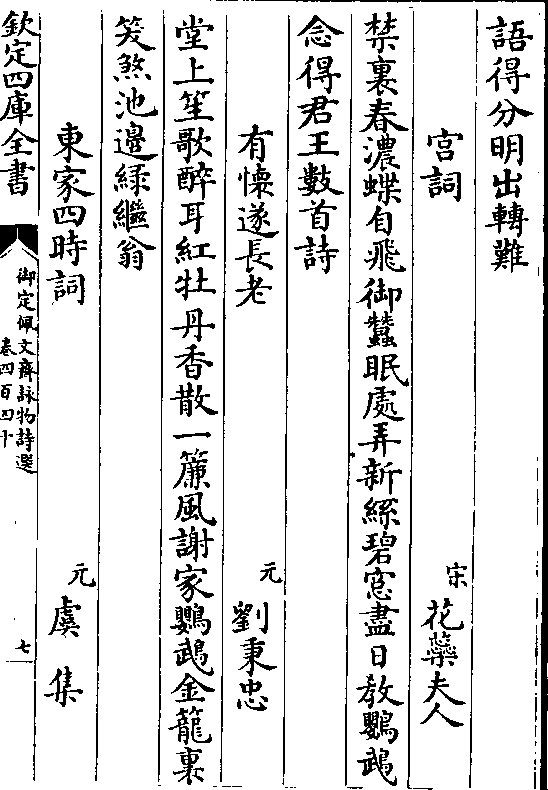 語得分明出轉難
宫詞 宋 花蘂夫人
禁裏春濃蝶自飛御蠶眠處弄新絲碧窓盡日教鸚鵡
念得君王數首詩
有懷遂長老 元 劉秉忠
堂上笙歌醉耳紅牡丹香散一簾風謝家鸚鵡金籠裏
笑煞池邊緑繼翁
東家四時詞 元 虞集
欽定四庫全書 御定佩文齋詠物詩選 卷四百四十 七